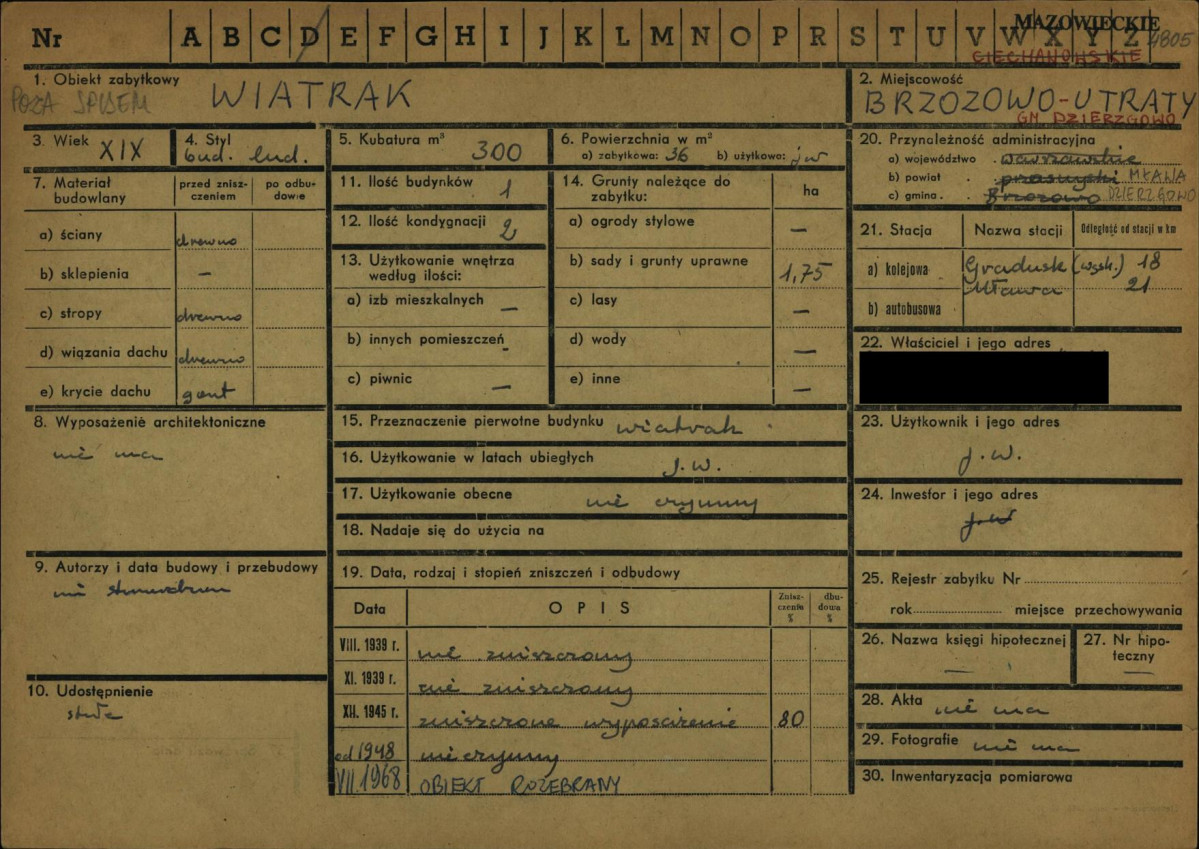 Nr A B C D E F G H I J K L M N O P R S T U V W X Y Z 4805
MAZOWIECKIE
CIECHANOWSKIE
1. Obiekt zabytkowy
POZA SPISEM WIATRAK
2. Miejscowość
BRZOZOWO-UTRATY
GM. DZIERZGOWO
3. Wiek XIX
4. Styl
bud. lud.
5. Kubatura m³ 300
6. Powierzchnia w m²
a) zabytkowa: 36 b) użytkowa: jw
7. Materiał budowlany
przed zniszczeniem
po odbudowie
a) ściany drewno
b) sklepienia —
c) stropy drewno
d) wiązania dachu drewno
e) krycie dachu gont
8. Wyposażenie architektoniczne
nie ma
9. Autorzy i data budowy i przebudowy
nie stwierdzono
10. Udostępnienie
11. Ilość budynków 1
12. Ilość kondygnacji 2
13. Użytkowanie wnętrza
według ilości:
a) izb mieszkalnych —
b) innych pomieszczeń -
c) piwnic —
14. Grunty należące do
zabytku: ha
a) ogrody stylowe —
b) sady i grunty uprawne 1,75
c) lasy —
d) wody —
e) inne —
15. Przeznaczenie pierwotne budynku wiatrak
16. Użytkowanie w latach ubiegłych j.w.
17. Użytkowanie obecne nie czynny
18. Nadaje się do użycia na
19. Data, rodzaj i stopień zniszczeń i odbudowy
Data OPIS Zniszczenia % dbudowa %
VIII. 1939 r. nie zniszczony
XI. 1939 r. nie zniszczony
XII. 1945 r. zniszczone wyposażenie 80
od 1948 nieczynny
VII.1968 OBIEKT ROZEBRANY
20. Przynależność administracyjna
a) województwo warszawskie
b) powiat przasnyski MŁAWA
c) gmina Brzozowo DZIERZGOWO
21. Stacja Nazwa stacji Odległość od stacji w km
a) kolejowa Gradusk (wąsk.) 18
Mława 21
b) autobusowa
22. Właściciel i jego adres
23. Użytkownik i jego adres
j.w.
24. Inwestor i jego adres
j.w
25. Rejestr zabytku Nr
rok miejsce przechowywania
26. Nazwa księgi hipotecznej
—
27. Nr hipoteczny
—
28. Akta nie ma
29. Fotografie nie ma
30. Inwentaryzacja pomiarowa